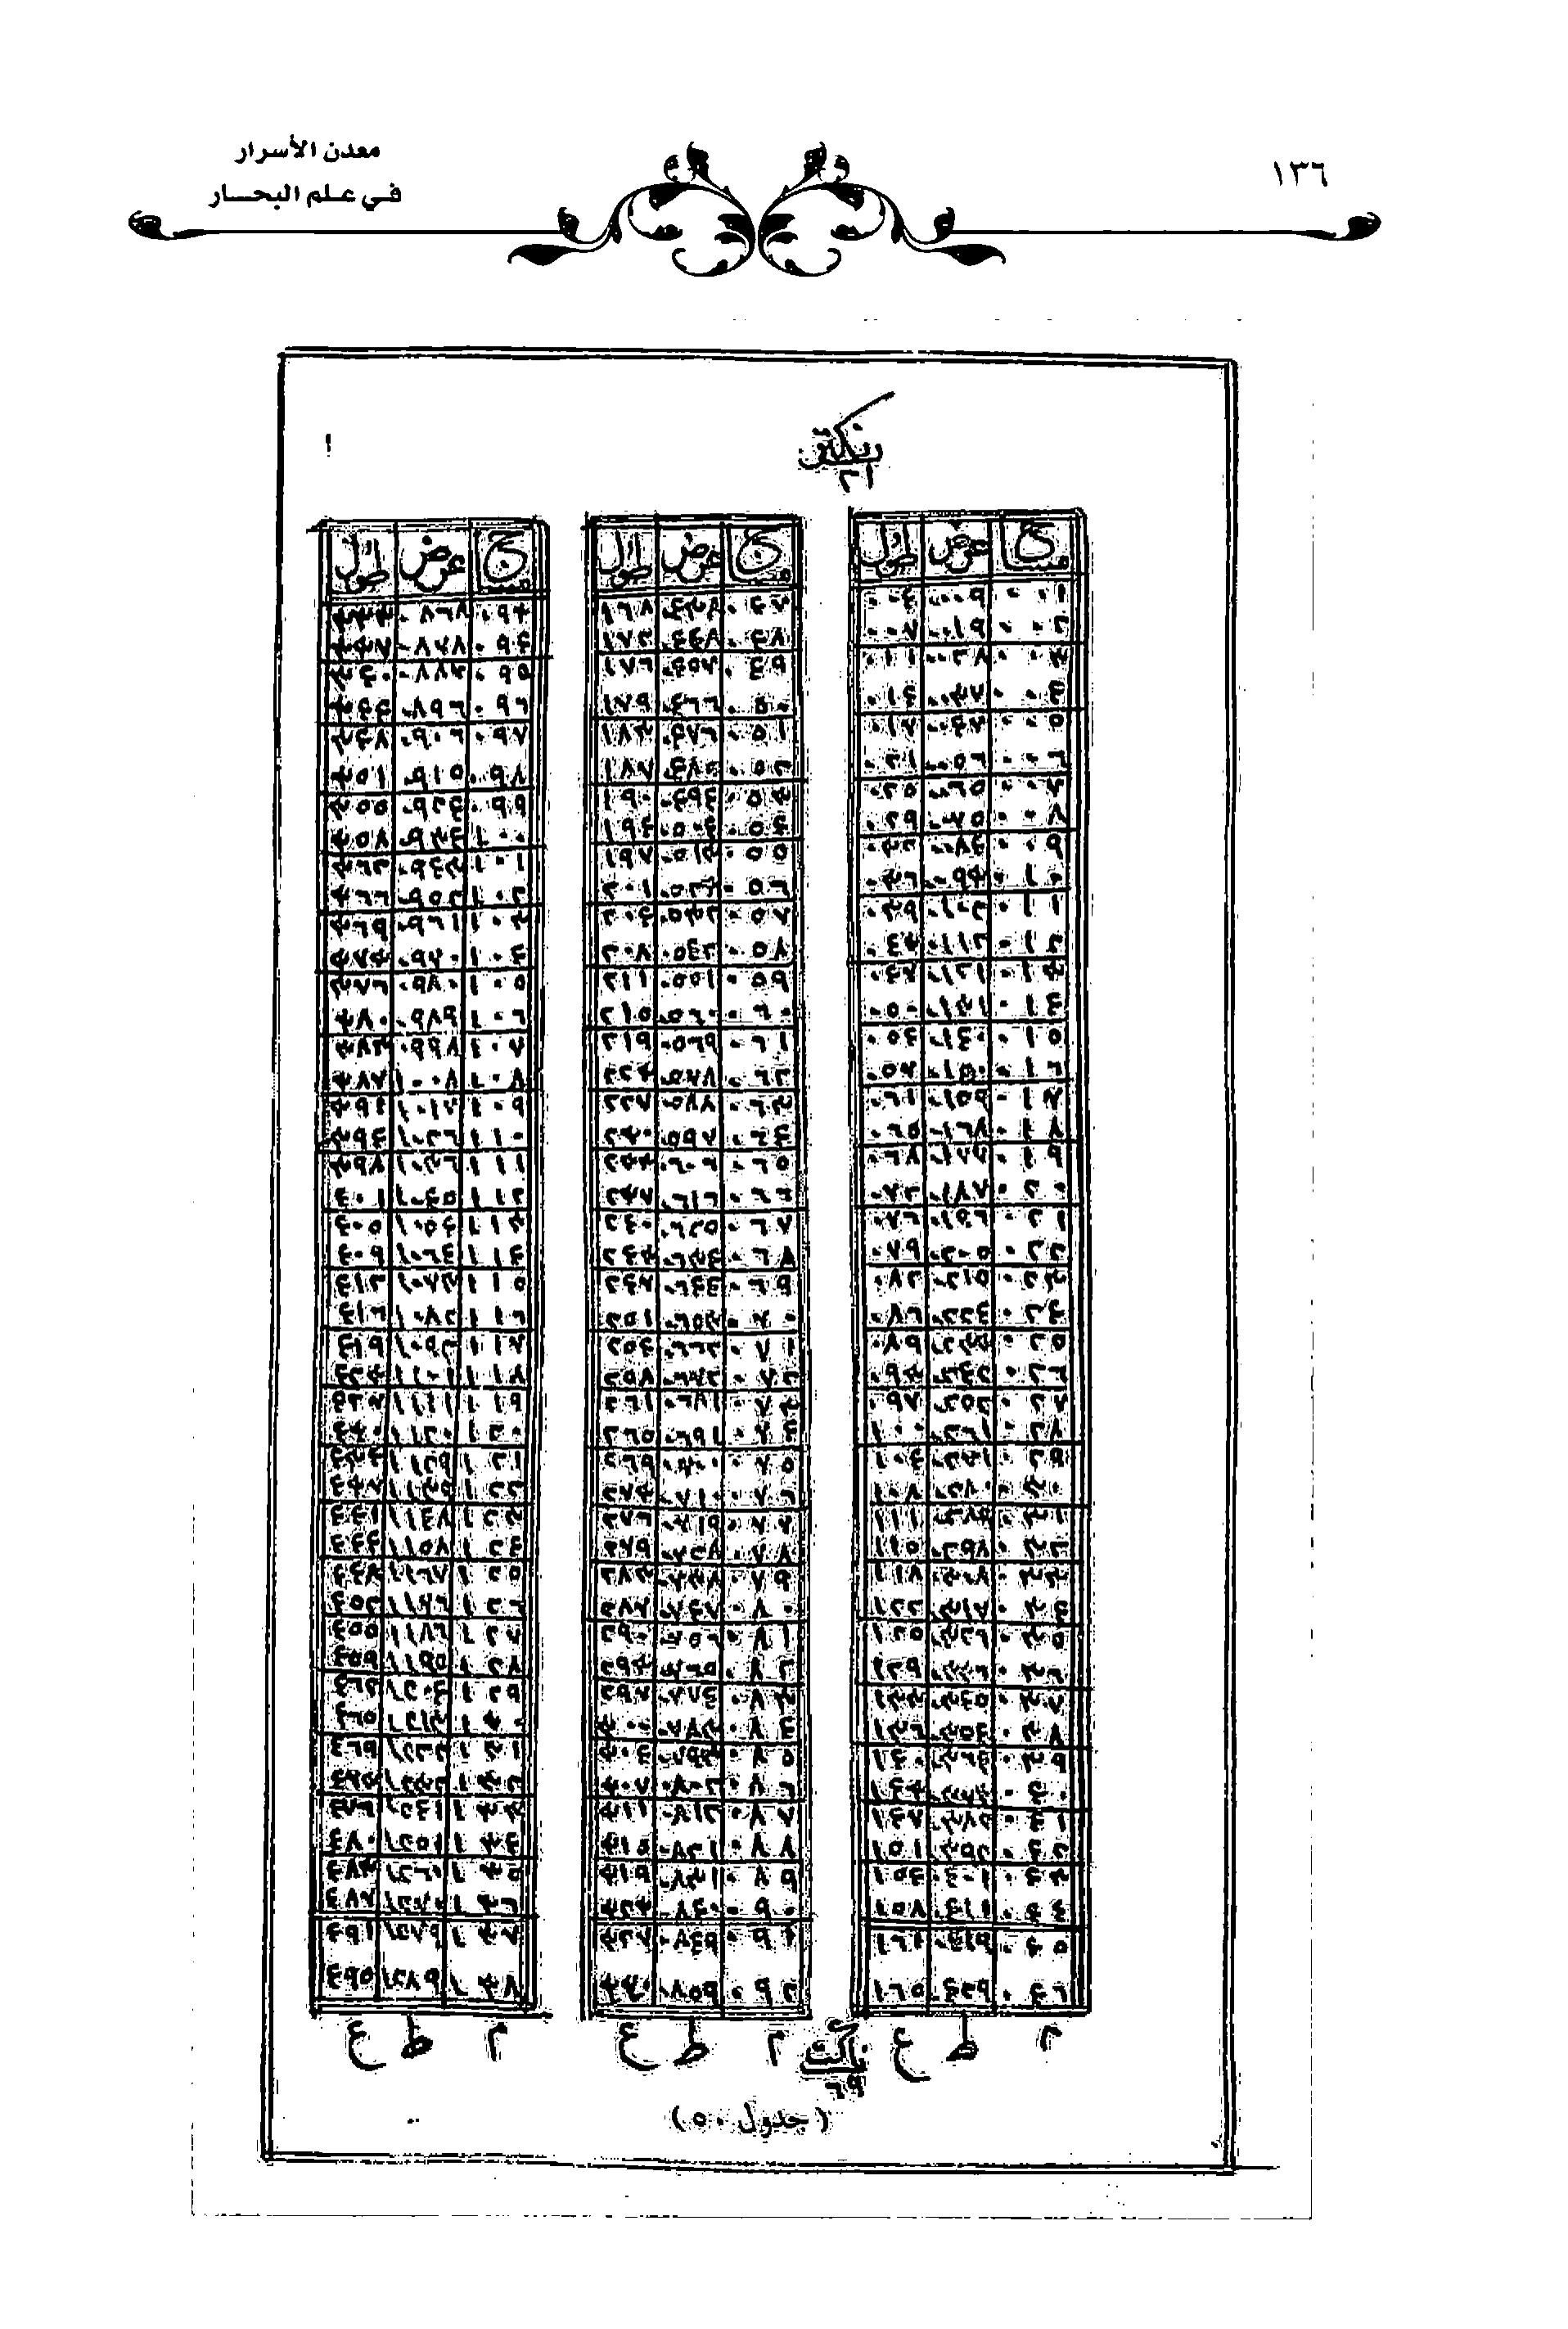 معدن الأسرار
في علم البحار
١٣٦
رنكتن
٢١
ج عرض طول
٠٠١ ٠٠٠٩ ٠٠٤
٠٠٢ ٠٠١٩ ٠٠٧
٠٠٣ ٠٠٢٨ ٠١١
٠٠٤ ٠٠٣٧ ٠١٤
٠٠٥ ٠٠٤٧ ٠١٧
٠٠٦ ٠٠٥٦ ٠٢١
٠٠٧ ٠٠٦٥ ٠٢٥
٠٠٨ ٠٠٧٥ ٠٢٩
٠٠٩ ٠٠٨٤ ٠٣٢
٠١٠ ٠٠٩٣ ٠٣٦
٠١١ ٠١٠٢ ٠٣٩
٠١٢ ٠١١٢ ٠٤٣
٠١٣ ٠١٢١ ٠٤٧
٠١٤ ٠١٣١ ٠٥٠
٠١٥ ٠١٤٠ ٠٥٤
٠١٦ ٠١٥٠ ٠٥٧
٠١٧ ٠١٥٩ ٠٦١
٠١٨ ٠١٦٨ ٠٦٥
٠١٩ ٠١٧٧ ٠٦٨
٠٢٠ ٠١٨٧ ٠٧٢
٠٢١ ٠١٩٦ ٠٧٦
٠٢٢ ٠٢٠٥ ٠٧٩
٠٢٣ ٠٢١٥ ٠٨٢
٠٢٤ ٠٢٢٤ ٠٨٦
٠٢٥ ٠٢٣٣ ٠٨٩
٠٢٦ ٠٢٤٢ ٠٩٣
٠٢٧ ٠٢٥٢ ٠٩٧
٠٢٨ ٠٢٦١ ١٠٠
٠٢٩ ٠٢٧١ ١٠٤
٠٣٠ ٠٢٨٠ ١٠٨
٠٣١ ٠٢٨٩ ١١١
٠٣٢ ٠٢٩٨ ١١٥
٠٣٣ ٠٣٠٨ ١١٨
٠٣٤ ٠٣١٧ ١٢٢
٠٣٥ ٠٣٢٦ ١٢٥
٠٣٦ ٠٣٣٦ ١٢٩
٠٣٧ ٠٣٤٥ ١٣٣
٠٣٨ ٠٣٥٤ ١٣٦
٠٣٩ ٠٣٦٤ ١٤٠
٠٤٠ ٠٣٧٣ ١٤٣
٠٤١ ٠٣٨٢ ١٤٧
٠٤٢ ٠٣٩٢ ١٥١
٠٤٣ ٠٤٠١ ١٥٤
٠٤٤ ٠٤١١ ١٥٨
٠٤٥ ٠٤١٩ ١٦١
٠٤٦ ٠٤٢٩ ١٦٥
م ط ع
ج عرض طول
٠٤٧ ٠٤٣٨ ١٦٨
٠٤٨ ٠٤٤٨ ١٧٢
٠٤٩ ٠٤٥٧ ١٧٦
٠٥٠ ٠٤٦٦ ١٧٩
٠٥١ ٠٤٧٦ ١٨٣
٠٥٢ ٠٤٨٥ ١٨٧
٠٥٣ ٠٤٩٤ ١٩٠
٠٥٤ ٠٥٠٤ ١٩٤
٠٥٥ ٠٥١٣ ١٩٧
٠٥٦ ٠٥٢٣ ٢٠١
٠٥٧ ٠٥٣٢ ٢٠٤
٠٥٨ ٠٥٤٢ ٢٠٨
٠٥٩ ٠٥٥١ ٢١١
٠٦٠ ٠٥٦٠ ٢١٥
٠٦١ ٠٥٦٩ ٢١٩
٠٦٢ ٠٥٧٨ ٢٢٣
٠٦٣ ٠٥٨٨ ٢٢٧
٠٦٤ ٠٥٩٧ ٢٣٠
٠٦٥ ٠٦٠٦ ٢٣٣
٠٦٦ ٠٦١٦ ٢٣٧
٠٦٧ ٠٦٢٥ ٢٤٠
٠٦٨ ٠٦٣٤ ٢٤٣
٠٦٩ ٠٦٤٤ ٢٤٧
٠٧٠ ٠٦٥٣ ٢٥١
٠٧١ ٠٦٦٢ ٢٥٤
٠٧٢ ٠٦٧٢ ٢٥٨
٠٧٣ ٠٦٨١ ٢٦١
٠٧٤ ٠٦٩١ ٢٦٥
٠٧٥ ٠٧٠٠ ٢٦٩
٠٧٦ ٠٧١٠ ٢٧٣
٠٧٧ ٠٧١٩ ٢٧٦
٠٧٨ ٠٧٢٨ ٢٧٩
٠٧٩ ٠٧٣٨ ٢٨٣
٠٨٠ ٠٧٤٧ ٢٨٧
٠٨١ ٠٧٥٦ ٢٩٠
٠٨٢ ٠٧٦٥ ٢٩٣
٠٨٣ ٠٧٧٤ ٢٩٧
٠٨٤ ٠٧٨٣ ٣٠٠
٠٨٥ ٠٧٩٣ ٣٠٤
٠٨٦ ٠٨٠٢ ٣٠٧
٠٨٧ ٠٨١٢ ٣١١
٠٨٨ ٠٨٢١ ٣١٥
٠٨٩ ٠٨٣١ ٣١٩
٠٩٠ ٠٨٤٠ ٣٢٣
٠٩١ ٠٨٤٩ ٣٢٧
٠٩٢ ٠٨٥٩ ٣٣٠
م ط ع
ج عرض طول
٠٩٣ ٠٨٦٨ ٣٣٣
٠٩٤ ٠٨٧٨ ٣٣٧
٠٩٥ ٠٨٨٣ ٣٤٠
٠٩٦ ٠٨٩٦ ٣٤٤
٠٩٧ ٠٩٠٦ ٣٤٨
٠٩٨ ٠٩١٥ ٣٥١
٠٩٩ ٠٩٢٤ ٣٥٥
١٠٠ ٠٩٣٤ ٣٥٨
١٠١ ٠٩٤٣ ٣٦٢
١٠٢ ٠٩٥٢ ٣٦٦
١٠٣ ٠٩٦١ ٣٦٩
١٠٤ ٠٩٧٠ ٣٧٣
١٠٥ ٠٩٨٠ ٣٧٦
١٠٦ ٠٩٨٩ ٣٨٠
١٠٧ ٠٩٩٨ ٣٨٣
١٠٨ ١٠٠٨ ٣٨٧
١٠٩ ١٠١٧ ٣٩١
١١٠ ١٠٢٦ ٣٩٤
١١١ ١٠٣٦ ٣٩٨
١١٢ ١٠٤٥ ٤٠١
١١٣ ١٠٥٤ ٤٠٥
١١٤ ١٠٦٤ ٤٠٩
١١٥ ١٠٧٣ ٤١٢
١١٦ ١٠٨٢ ٤١٦
١١٧ ١٠٩٢ ٤١٩
١١٨ ١١٠١ ٤٢٣
١١٩ ١١١١ ٤٢٧
١٢٠ ١١٢٠ ٤٣٠
١٢١ ١١٢٩ ٤٣٣
١٢٢ ١١٣٩ ٤٣٧
١٢٣ ١١٤٨ ٤٤١
١٢٤ ١١٥٨ ٤٤٤
١٢٥ ١١٦٧ ٤٤٨
١٢٦ ١١٧٦ ٤٥٢
١٢٧ ١١٨٦ ٤٥٥
١٢٨ ١١٩٥ ٤٥٩
١٢٩ ١٢٠٤ ٤٦٢
١٣٠ ١٢١٣ ٤٦٥
١٣١ ١٢٢٢ ٤٦٩
١٣٢ ١٢٣٢
١٣٣ ١٢٤١ ٤٧٦
١٣٤ ١٢٥١ ٤٨٠
١٣٥ ١٢٦١ ٤٨٣
١٣٦ ٤٨٧
١٣٧ ١٢٧٩ ٤٩١
١٣٨ ١٢٨٩ ٤٩٥
م ط ع
٦٩
(جدول ٥٠)